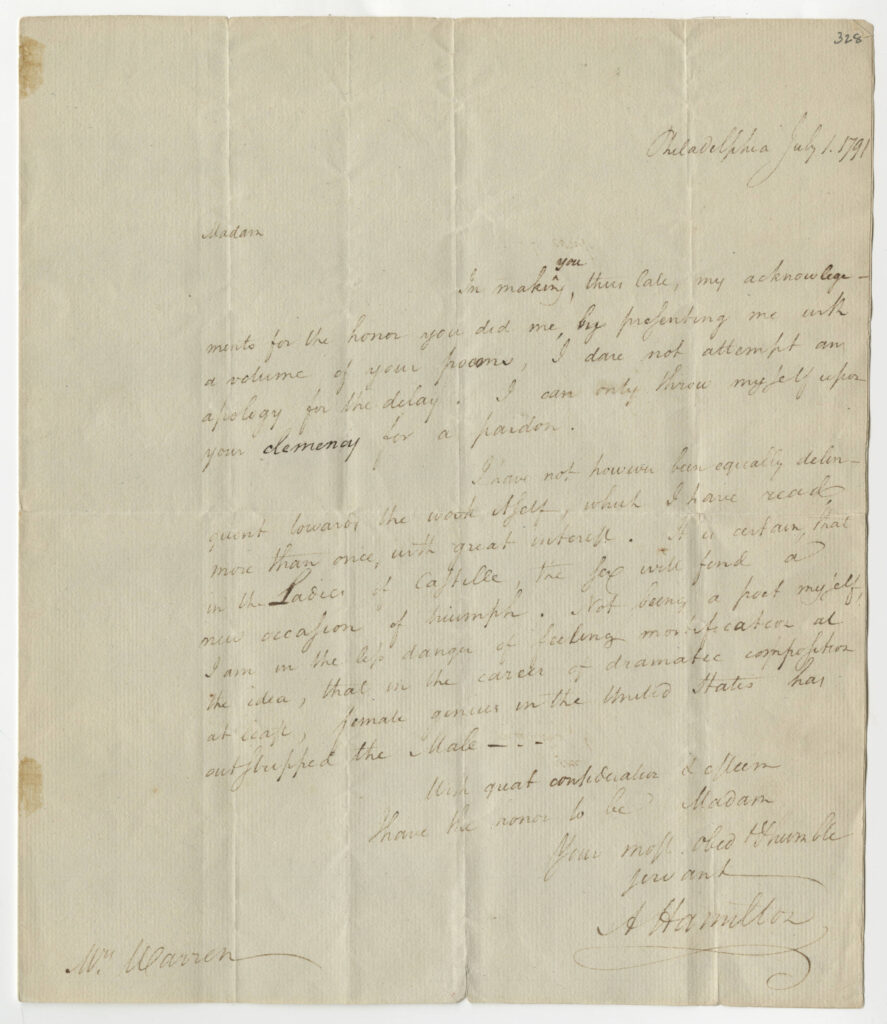 328
Philadelphia July 1. 1791
Madam
In making you, thus late, my acknowlege-
ments for the honor you did me, by presenting me with
a volume of your poems, I dare not attempt an
apology for the delay. I can only throw myself upon
your clemency for a pardon.
I have not however been equally delin-
quent towards the work itself, which I have read,
more than once, with great interest. It is certain, that
in the Ladies of Castille, the sex will find a
new occasion of triumph. Not being a poet myself,
I am in the less danger of feeling mortification at
the idea, that in the career of dramatic composition
at least, female genius in the United States has
outstripped the Male—..
With great consideration & esteem
I have the honor to be Madam
Your most obed & humble
servant
A Hamilton
Mrs. Warren